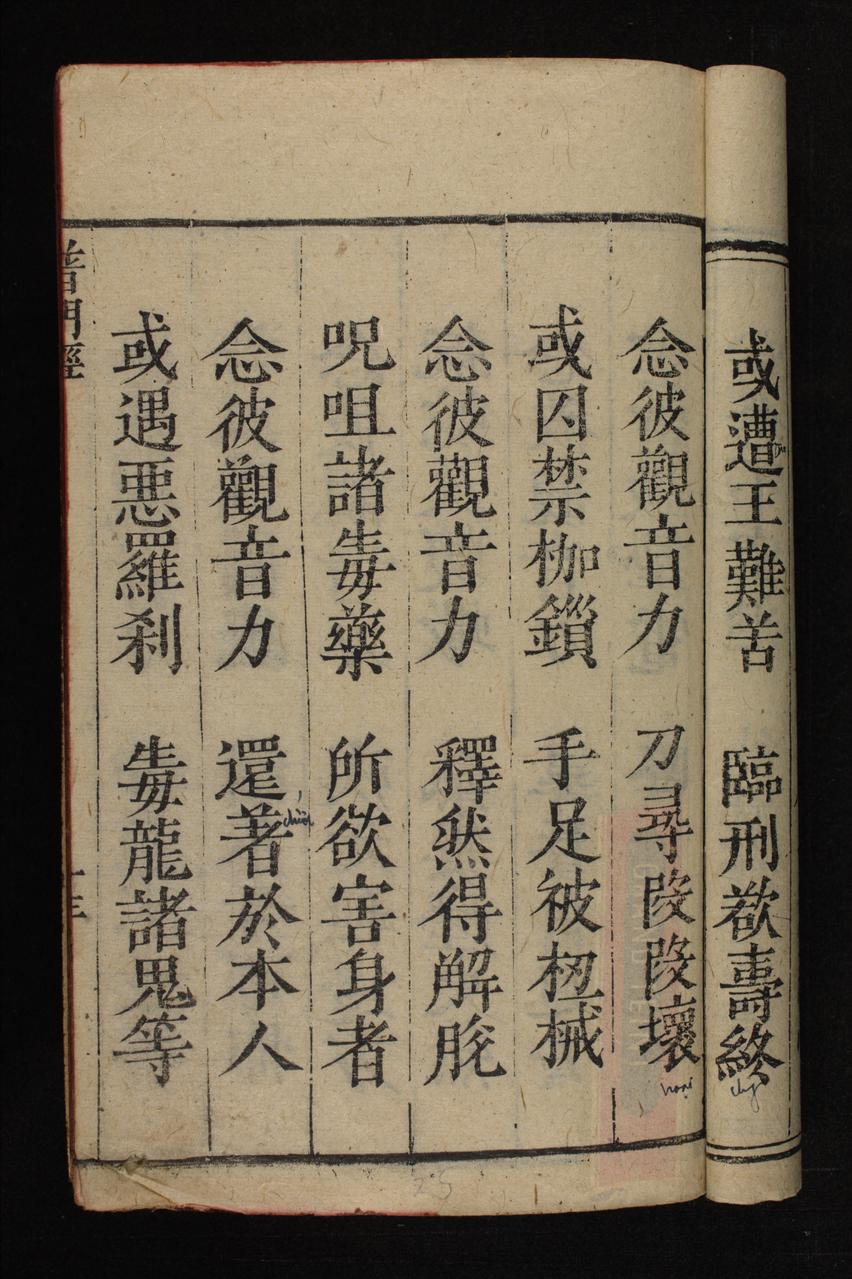 或遭王難苦 臨刑欲壽終
念彼觀音力 刀尋段段壞
或囚禁枷鎖 手足被杻械
念彼觀音力 釋然得解脫
呪咀諸毒藥 所欲害身者
念彼觀音力 還著於本人
或遇悪羅刹 毒龍諸鬼等
普門經
25